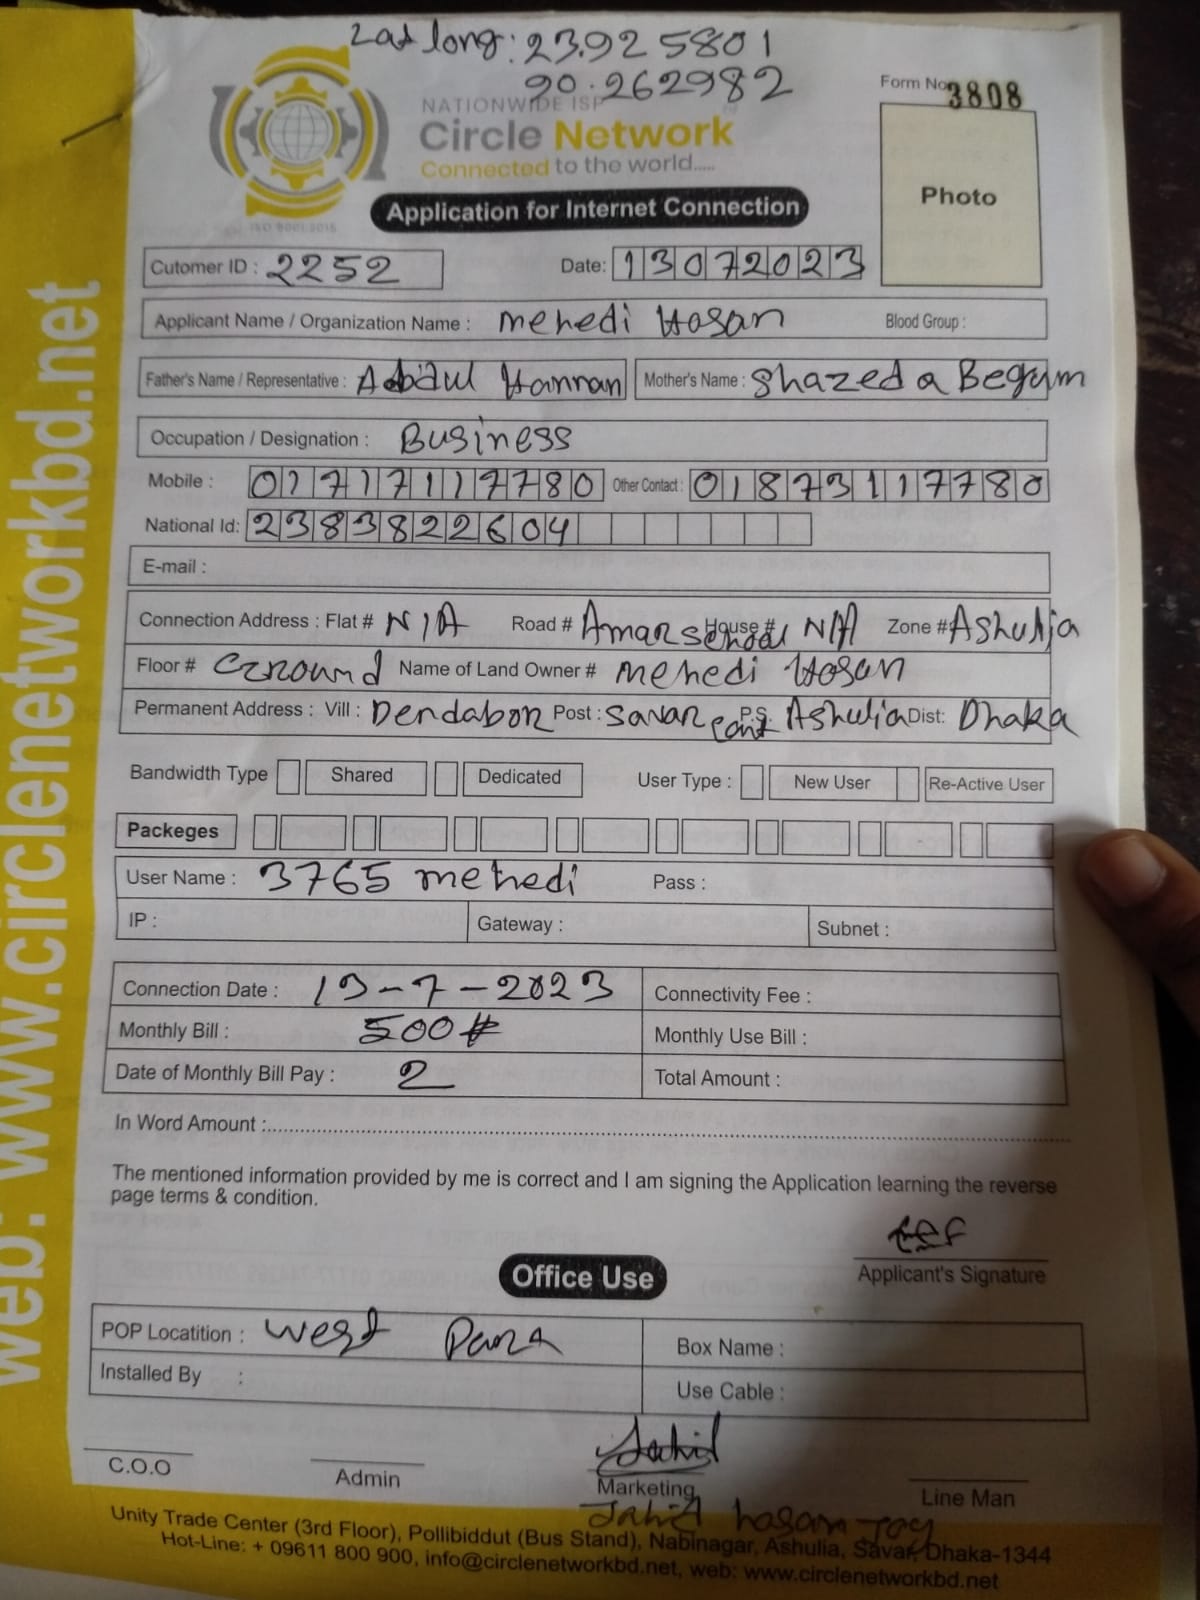 Lat long: 23.925801
90.262982
NATIONWIDE ISP
Circle Network
Connected to the world.....
ISO 9001:2015
Form No 3808
Photo
Application for Internet Connection
Cutomer ID : 2252 Date: 13072023
Applicant Name / Organization Name : Mehedi Hasan Blood Group :
Father's Name / Representative : Abdul Hannan Mother's Name : Shazeda Begum
Occupation / Designation : Business
Mobile : 01717117780 Other Contact : 01873117780
National Id: 2383822604
E-mail :
Connection Address : Flat # N/A Road # Amar school House # N/A Zone # Ashulia
Floor # Ground Name of Land Owner # Mehedi Hasan
Permanent Address : Vill : Dendabor Post : Savar Cant P.S. Ashulia Dist: Dhaka
Bandwidth Type Shared Dedicated User Type : New User Re-Active User
Packeges
User Name : 3765 mehedi Pass :
IP : Gateway : Subnet :
Connection Date : 13-7-2023 Connectivity Fee :
Monthly Bill : 500# Monthly Use Bill :
Date of Monthly Bill Pay : 2 Total Amount :
In Word Amount :
The mentioned information provided by me is correct and I am signing the Application learning the reverse
page terms & condition.
Applicant's Signature
Office Use
POP Locatition : West Para Box Name :
Installed By : Use Cable :
Jahid
C.O.O Admin Marketing Line Man
Jahid hasan Joy
Unity Trade Center (3rd Floor), Pollibiddut (Bus Stand), Nabinagar, Ashulia, Savar, Dhaka-1344
Hot-Line: + 09611 800 900, info@circlenetworkbd.net, web: www.circlenetworkbd.net
web: www.circlenetworkbd.net